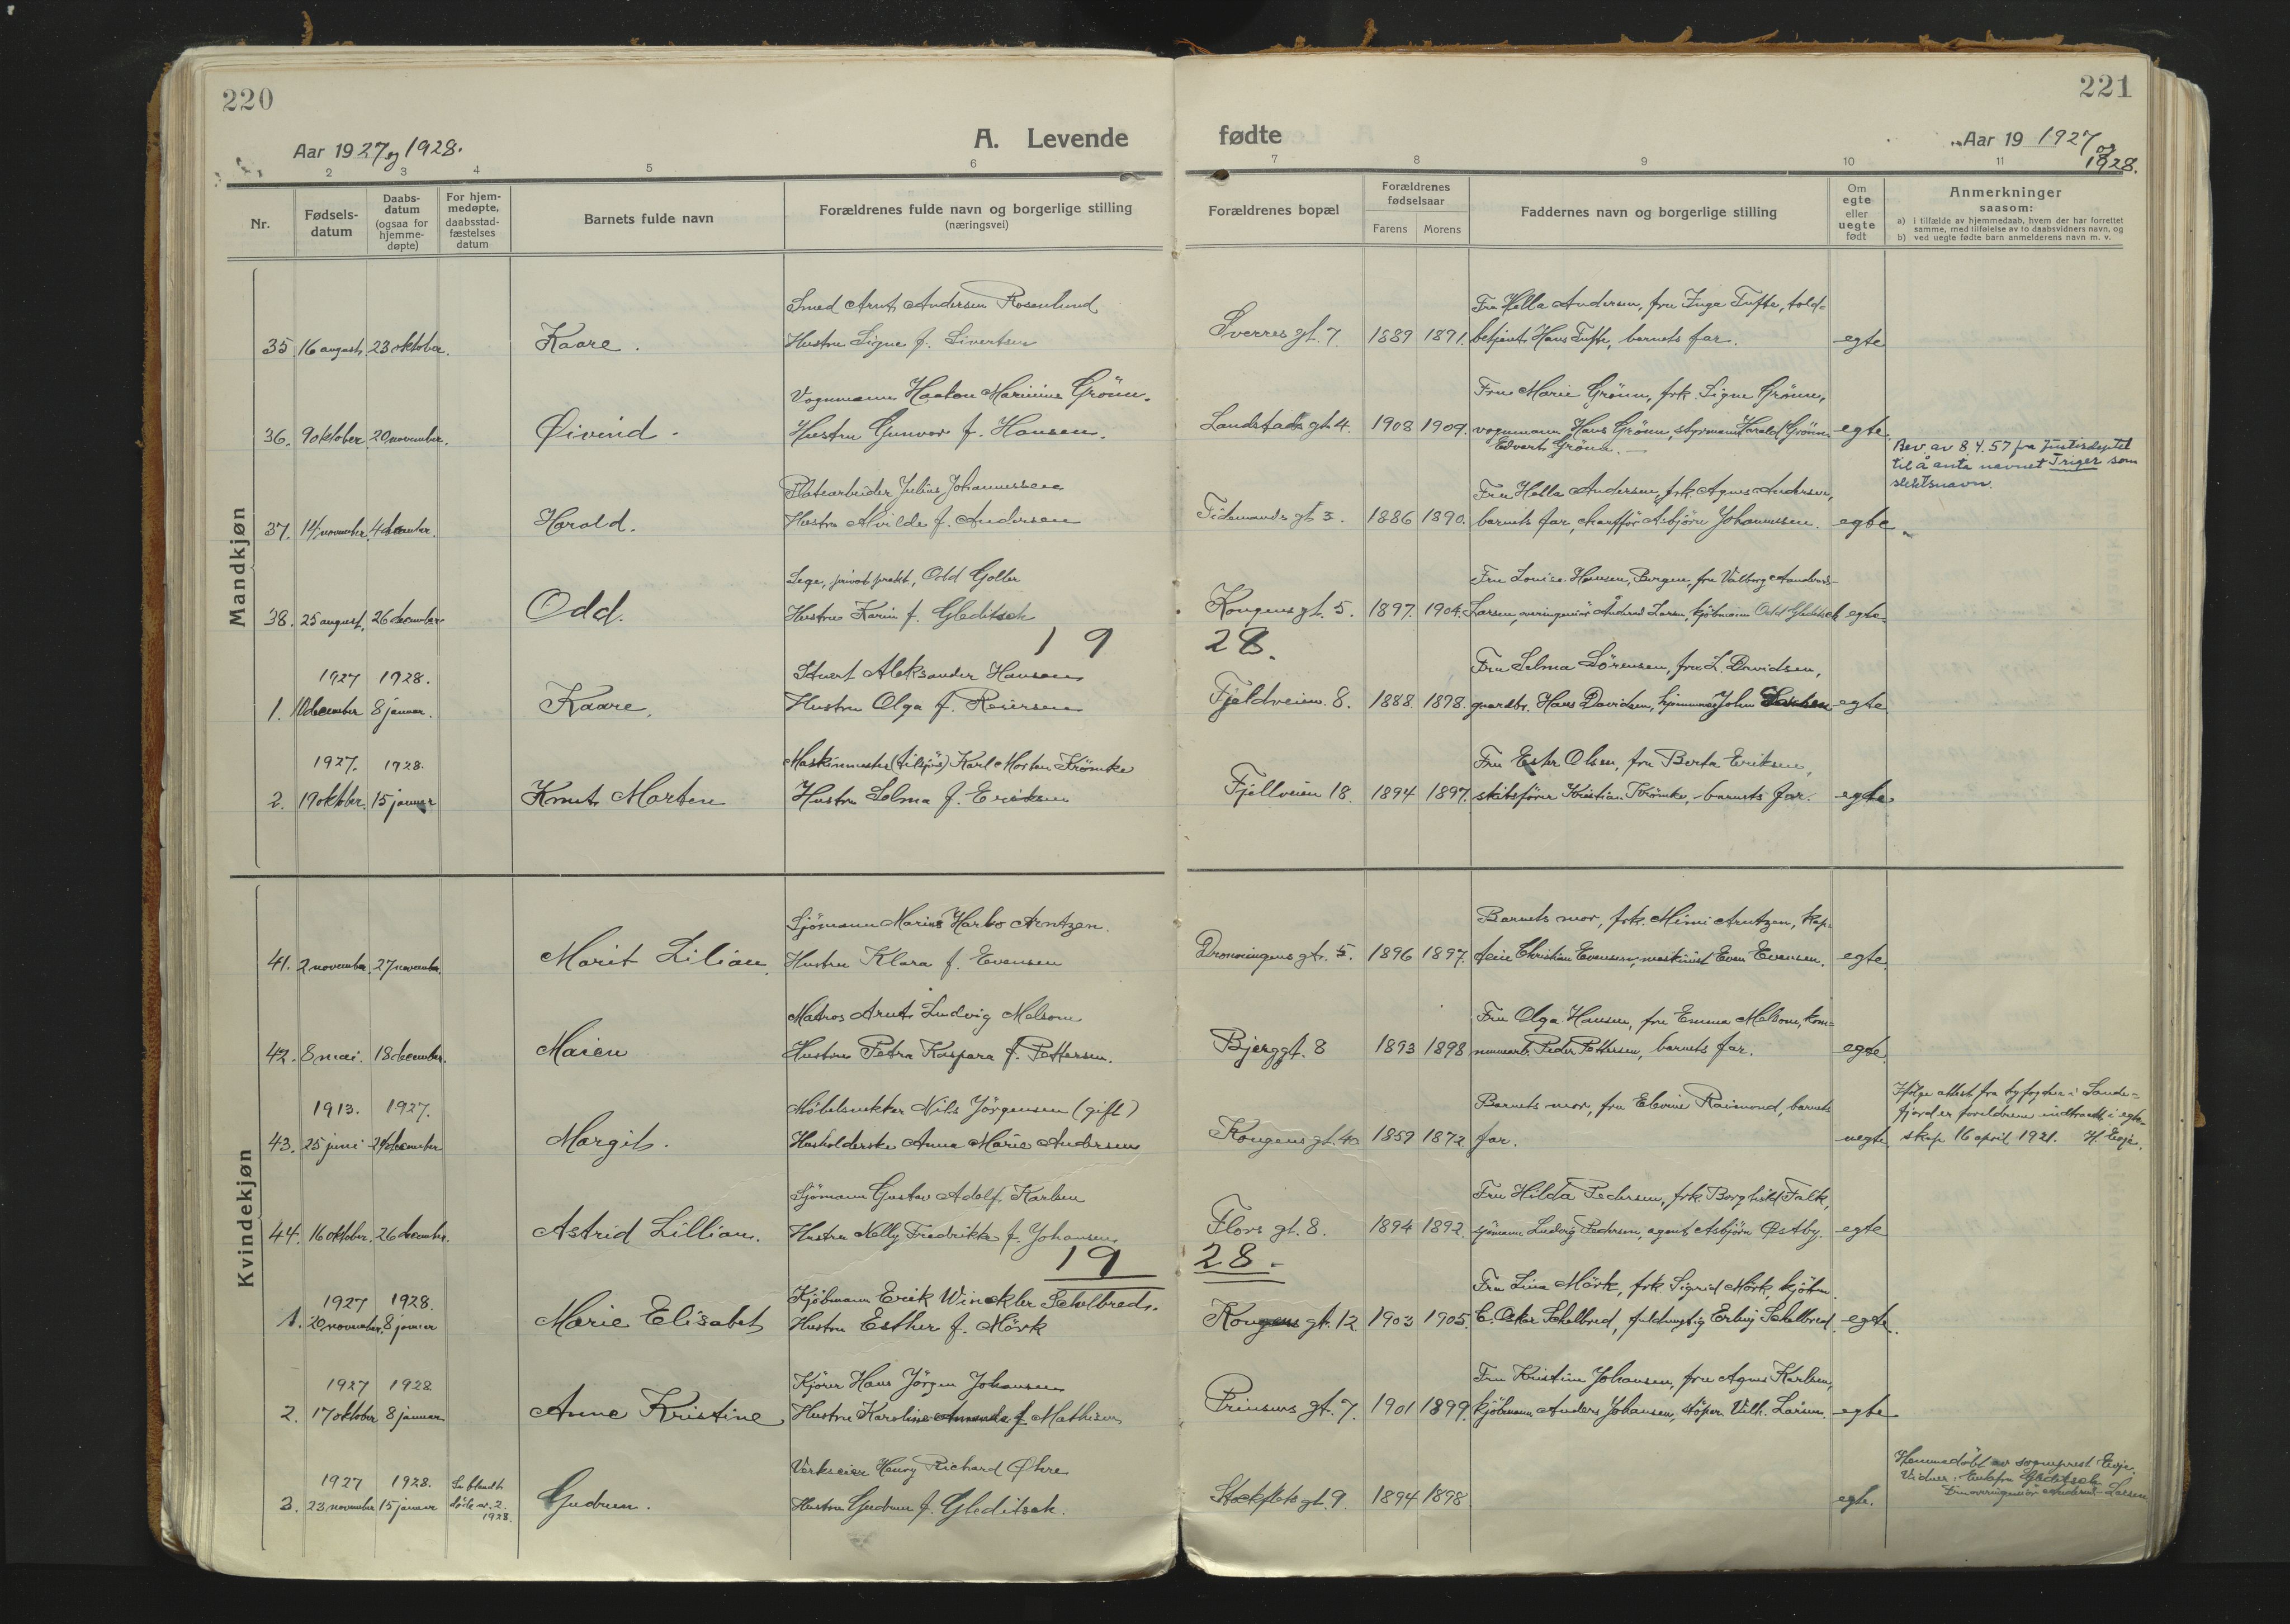 220
Aar 1927 og 1928.
A. Levende
2 3 4 5 6
Nr.
Fødsels-
datum
Daabs-
datum
(ogsaa for
hjemme-
døpte)
For hjem-
medøpte,
daabsstad-
fæstelses
datum
Barnets fulde navn
Forældrenes fulde navn og borgerlige stilling
(næringsvei)
221
fødte
Aar 19 1927 og
1928.
7 8 9 10 11
Forældrenes bopæl
Forældrenes
fødselsaar
Farens Morens
Faddernes navn og borgerlige stilling
Om
egte
eller
uegte
født
Anmerkninger
saasom:
a) i tilfælde av hjemmedaab, hvem der har forrettet
samme, med tilføielse av to daabsvidners navn, og
b) ved uegte fødte barn anmelderens navn m. v.
Mandkjøn
Smed Arnt Andersen Rosenlund
Fru Hella Andersen, fru Inga Tufte, told-
35. 16 august. 23 oktober. Kaare. Hustru Signe f. Sivertsen
Sverres gt. 7. 1889 1891. betjent Hans Tufte, barnets far. egte
Vognmann Haakon Marinius Grönn.
Fru Marie Grönn, frk. Signe Grönn,
36. 9 oktober 20 november. Øivind. Hustru Gunvor f. Hansen.
Landstads gt. 4. 1908 1909. vognmann Hans Grönn, styrmann Harald Grönn egte.
Edvart Grönn.
Bev. av 8.4.57 fra Justisdeptet
til å anta navnet Triger som
slektsnavn.
Platearbeider Julius Johannessen
Fru Hella Andersen, frk. Agnes Andersen,
37. 14 november. 4 december. Harald. Hustru Alvilde f. Andersen
Tidemands gt. 3. 1886 1890. barnets far, chaufför Asbjörn Johannessen. egte
Lege, privat prakt, Odd Goller
Fru Louise Hansen, Bergen, fru Valborg Anderws-
38. 25 august. 26 december. Odd. Hustru Karin f. Gleditsch
Kongens gt. 5. 1897. 1904. Larsen, overingeniör Larsen, kjöbmann Odd Gleditsch egte
19 28.
1927 1928.
Stuert Aleksander Hansen
Fru Selma Sörensen, fru L. Davidsen,
1. 11 december 8 januar. Kaare. Hustru Olga f. Reiersen
Fjeldveien. 8. 1888 1898. gaardbr. Hans Davidsen, John egte
1927. 1928.
Maskinmester (tilsjös) Karl Morten Krömke
Fru Ester Olsen, fru Berta Eriksen,
2. 19 oktober. 15 januar Knut Morten Hustru Selma f. Eriksen
Fjellveien 18. 1894 1897. skibsförer Kristian Krömke, barnets far. egte.
Kvindekjøn
Sjömann Marius Harbo Arntzen.
Barnets mor, frk. Mimi Arntzen, kap-
41. 2 november. 27 november. Marit Lilian. Hustru Klara f. Evensen
Dronningens gt. 5. 1896 1897. tein Christian Evensen, maskinist Even Evensen. egte.
Matros Arnt Ludvig Melsom
Fru Olga Hansen, fru Emma Melsom, kom-
42. 8 mai. 18 december. Maien Hustru Petra Kaspara f. Pettersen.
Bjerggt. 8 1893 1898 munearb. Peder Pettersen, barnets far. egte
1913. 1927.
Möbelsnekker Nils Jörgensen (gift)
Barnets mor, fru Elevine Raimond, barnets
43. 25 juni 29 december Margit. Husholderske Anna Marie Andersen
Kongens gt. 40 1859 1872. far. uegte
Ifölge attest fra byfogden i Sande-
fjord er foreldrene indtraadt i egte-
skap 16 april 1921. H. Evje.
Sjömann Gustav Adolf Karlsen
Fru Hilda Pedersen, frk. Borghild Falk,
44. 16 oktober. 26 december. Astrid Lillian. Hustru Nelly Fredrikke f. Johansen
Flors gt. 8. 1894 1892. sjömann Ludvig Pedersen, agent Asbjörn Østby. egte
19 28.
1927 1928.
Kjöbmann Erik Winckler Schelbred.
Fru Lina Mörk, frk. Sigrid Mörk, kjöbm.
1. 20 november. 8 januar Marie Elisabet Hustru Esther f. Mörk
Kongens gt. 12 1903 1905. C. Oskar Schelbred, fuldmegtig Erling Schelbred egte.
1927 1928
Kjörer Hans Jörgen Johansen
Fru Kristine Johansen, fru Agnes Karlsen,
2. 17 oktober 8 januar Anne Kristine Hustru Karoline Amanda f. Mathisen
Prinsens gt. 7. 1901 1899. kjöbmann Anders Johansen, stöper Vilh. Larsen. egte
1927 1928.
Verkseier Henry Richard Øhre
3. 23 november 15 januar Se blandt
döde nr. 2.
1928.
Gudrun. Hustru Gudrun f. Gleditsch.
Stockflets gt. 9. 1894 1898 egte.
Hjemmedöbt av sogneprest Evje.
Vidner: Enkefru Gleditsch
Fru overingeniör Larsen